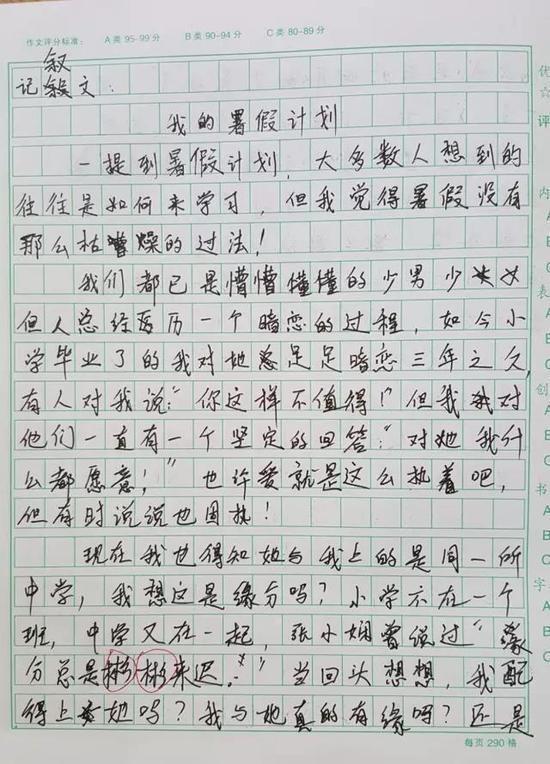 作文评分标准： A类 95-99分 B类 90-94分 C类 80-89分
叙
记 文：
我的暑假计划
一提到暑假计划，大多数人想到的
往往是如何来学习，但我觉得暑假没有
那么枯燥的过法！
我们都已是懵懵懂懂的少男少女
但人总经历一个暗恋的过程，如今小
学毕业了的我对她足足暗恋三年之久，
有人对我说：“你这样不值得！”但我对
他们一直有一个坚定的回答：“对她我什
么都愿意！”也许爱就是这么执着吧，
但有时说说也固执！
现在我也得知她与我上的是同一所
中学，我想这是缘分吗？小学不在一个
班，中学又在一起，张小娴曾说过“缘
分总是彬彬来迟。”当回头想想，我配
得上她吗？我与她真的有缘吗？还是
每页 290 格
优
☆
评
内
A
B
C
表
A
B
C
创
A
B
C
书
A
B
C
字
A
B
C